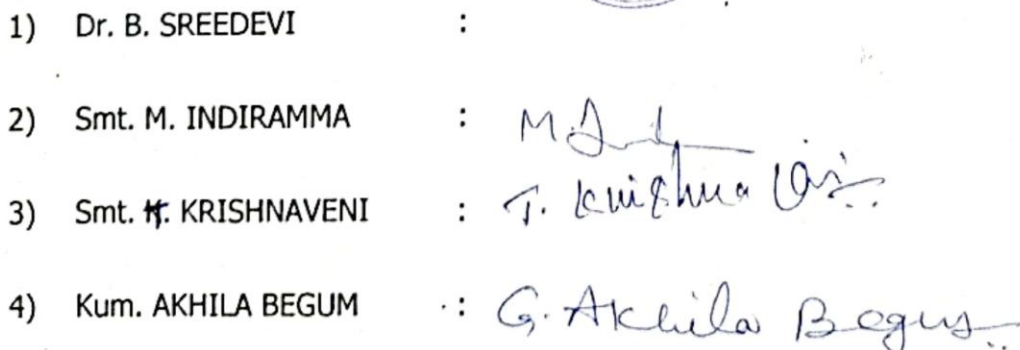 1) Dr. B. SREEDEVI :
2) Smt. M. INDIRAMMA : M. Ind
3) Smt. T. KRISHNAVENI : T. Krishna Veni
4) Kum. AKHILA BEGUM : G. Akhila Begum